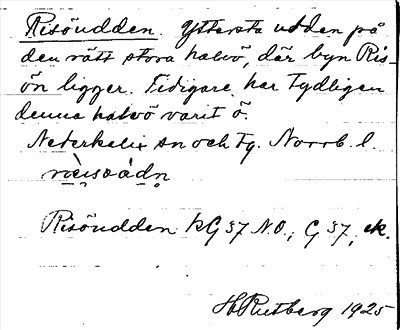 Risöudden. Yttersta udden på
den rätt stora halvö, där byn Ris-
ön ligger. Tidigare har tydligen
denna halvö varit ö.
Nederkalix sn och tg. Norrb. l.
Risöudden kG 37 N.O.; G 37, ek.
H Rutberg 1925